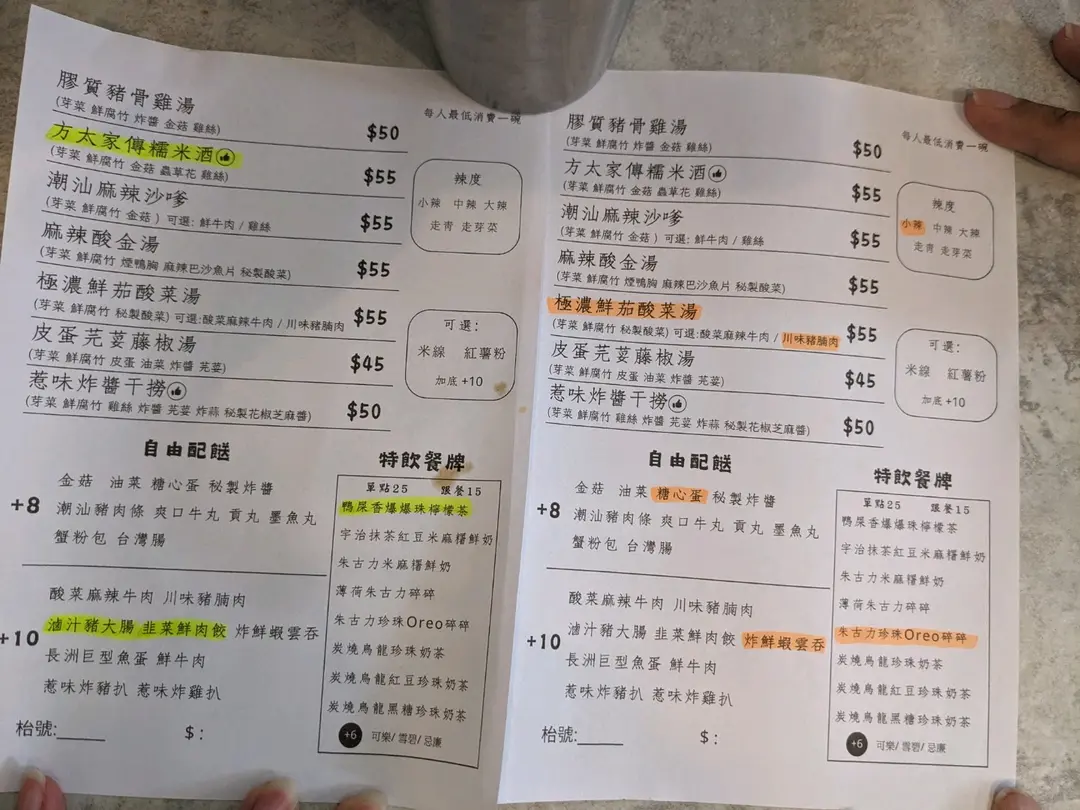 膠質豬骨雞湯 $50
(芽菜 鮮腐竹 炸醬 金菇 雞絲)
方太家傳糯米酒 $55
(芽菜 鮮腐竹 金菇 蟲草花 雞絲)
潮汕麻辣沙嗲 $55
(芽菜 鮮腐竹 金菇 ) 可選: 鮮牛肉 / 雞絲
麻辣酸金湯 $55
(芽菜 鮮腐竹 煙鴨胸 麻辣巴沙魚片 秘製酸菜)
極濃鮮茄酸菜湯 $55
(芽菜 鮮腐竹 秘製酸菜) 可選:酸菜麻辣牛肉 / 川味豬腩肉
皮蛋芫荽藤椒湯 $45
(芽菜 鮮腐竹 皮蛋 油菜 炸醬 芫荽)
惹味炸醬干撈 $50
(芽菜 鮮腐竹 雞絲 炸醬 芫荽 炸蒜 秘製花椒芝麻醬)
每人最低消費一碗
辣度
小辣 中辣 大辣
走青 走芽菜
可選:
米線 紅薯粉
加底 +10
自由配餸
+8
金菇 油菜 糖心蛋 秘製炸醬
潮汕豬肉條 爽口牛丸 貢丸 墨魚丸
蟹粉包 台灣腸
+10
酸菜麻辣牛肉 川味豬腩肉
滷汁豬大腸 韭菜鮮肉餃 炸鮮蝦雲吞
長洲巨型魚蛋 鮮牛肉
惹味炸豬扒 惹味炸雞扒
枱號:_____ $ :
特飲餐牌
單點25 跟餐15
鴨屎香爆爆珠檸檬茶
宇治抹茶紅豆米麻糬鮮奶
朱古力米麻糬鮮奶
薄荷朱古力碎碎
朱古力珍珠Oreo碎碎
炭燒烏龍珍珠奶茶
炭燒烏龍紅豆珍珠奶茶
炭燒烏龍黑糖珍珠奶茶
+6 可樂/ 雪碧/ 忌廉
膠質豬骨雞湯 $50
(芽菜 鮮腐竹 炸醬 金菇 雞絲)
方太家傳糯米酒 $55
(芽菜 鮮腐竹 金菇 蟲草花 雞絲)
潮汕麻辣沙嗲 $55
(芽菜 鮮腐竹 金菇 ) 可選: 鮮牛肉 / 雞絲
麻辣酸金湯 $55
(芽菜 鮮腐竹 煙鴨胸 麻辣巴沙魚片 秘製酸菜)
極濃鮮茄酸菜湯 $55
(芽菜 鮮腐竹 秘製酸菜) 可選:酸菜麻辣牛肉 / 川味豬腩肉
皮蛋芫荽藤椒湯 $45
(芽菜 鮮腐竹 皮蛋 油菜 炸醬 芫荽)
惹味炸醬干撈 $50
(芽菜 鮮腐竹 雞絲 炸醬 芫荽 炸蒜 秘製花椒芝麻醬)
每人最低消費一碗
辣度
小辣 中辣 大辣
走青 走芽菜
可選:
米線 紅薯粉
加底 +10
自由配餸
+8
金菇 油菜 糖心蛋 秘製炸醬
潮汕豬肉條 爽口牛丸 貢丸 墨魚丸
蟹粉包 台灣腸
+10
酸菜麻辣牛肉 川味豬腩肉
滷汁豬大腸 韭菜鮮肉餃 炸鮮蝦雲吞
長洲巨型魚蛋 鮮牛肉
惹味炸豬扒 惹味炸雞扒
枱號:_____ $ :
特飲餐牌
單點25 跟餐15
鴨屎香爆爆珠檸檬茶
宇治抹茶紅豆米麻糬鮮奶
朱古力米麻糬鮮奶
薄荷朱古力碎碎
朱古力珍珠Oreo碎碎
炭燒烏龍珍珠奶茶
炭燒烏龍紅豆珍珠奶茶
炭燒烏龍黑糖珍珠奶茶
+6 可樂/ 雪碧/ 忌廉